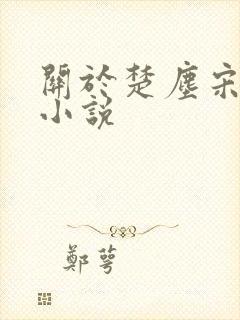 關於楚塵宋
小說
鄭萼